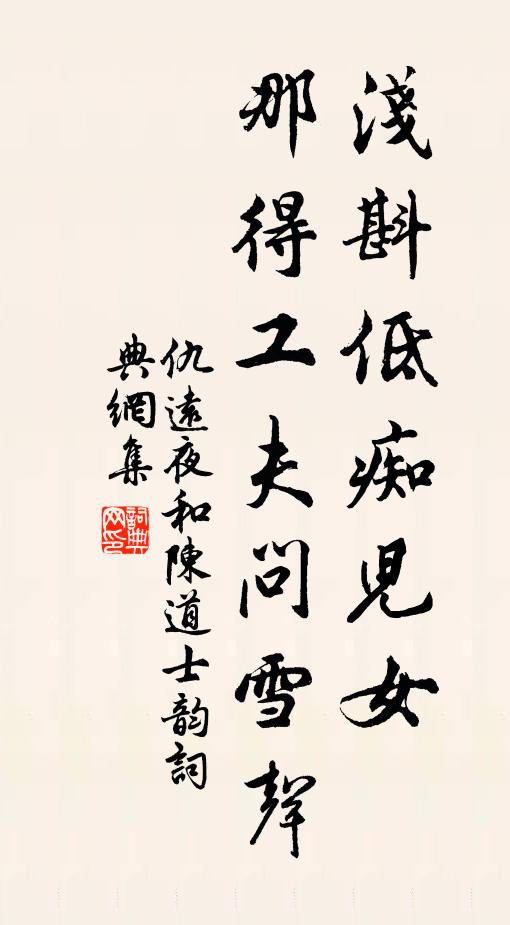 淺斟低痴兒女
那得工夫問雪聲
仇遠夜和陳道士韵詞
典網集
詞典网印